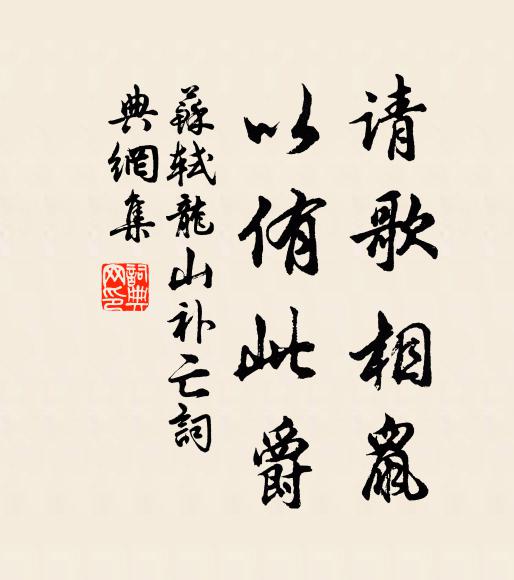 请歌相鼠
以侑此爵
蘇轼龍山补亡詞
典網集
詞典网印